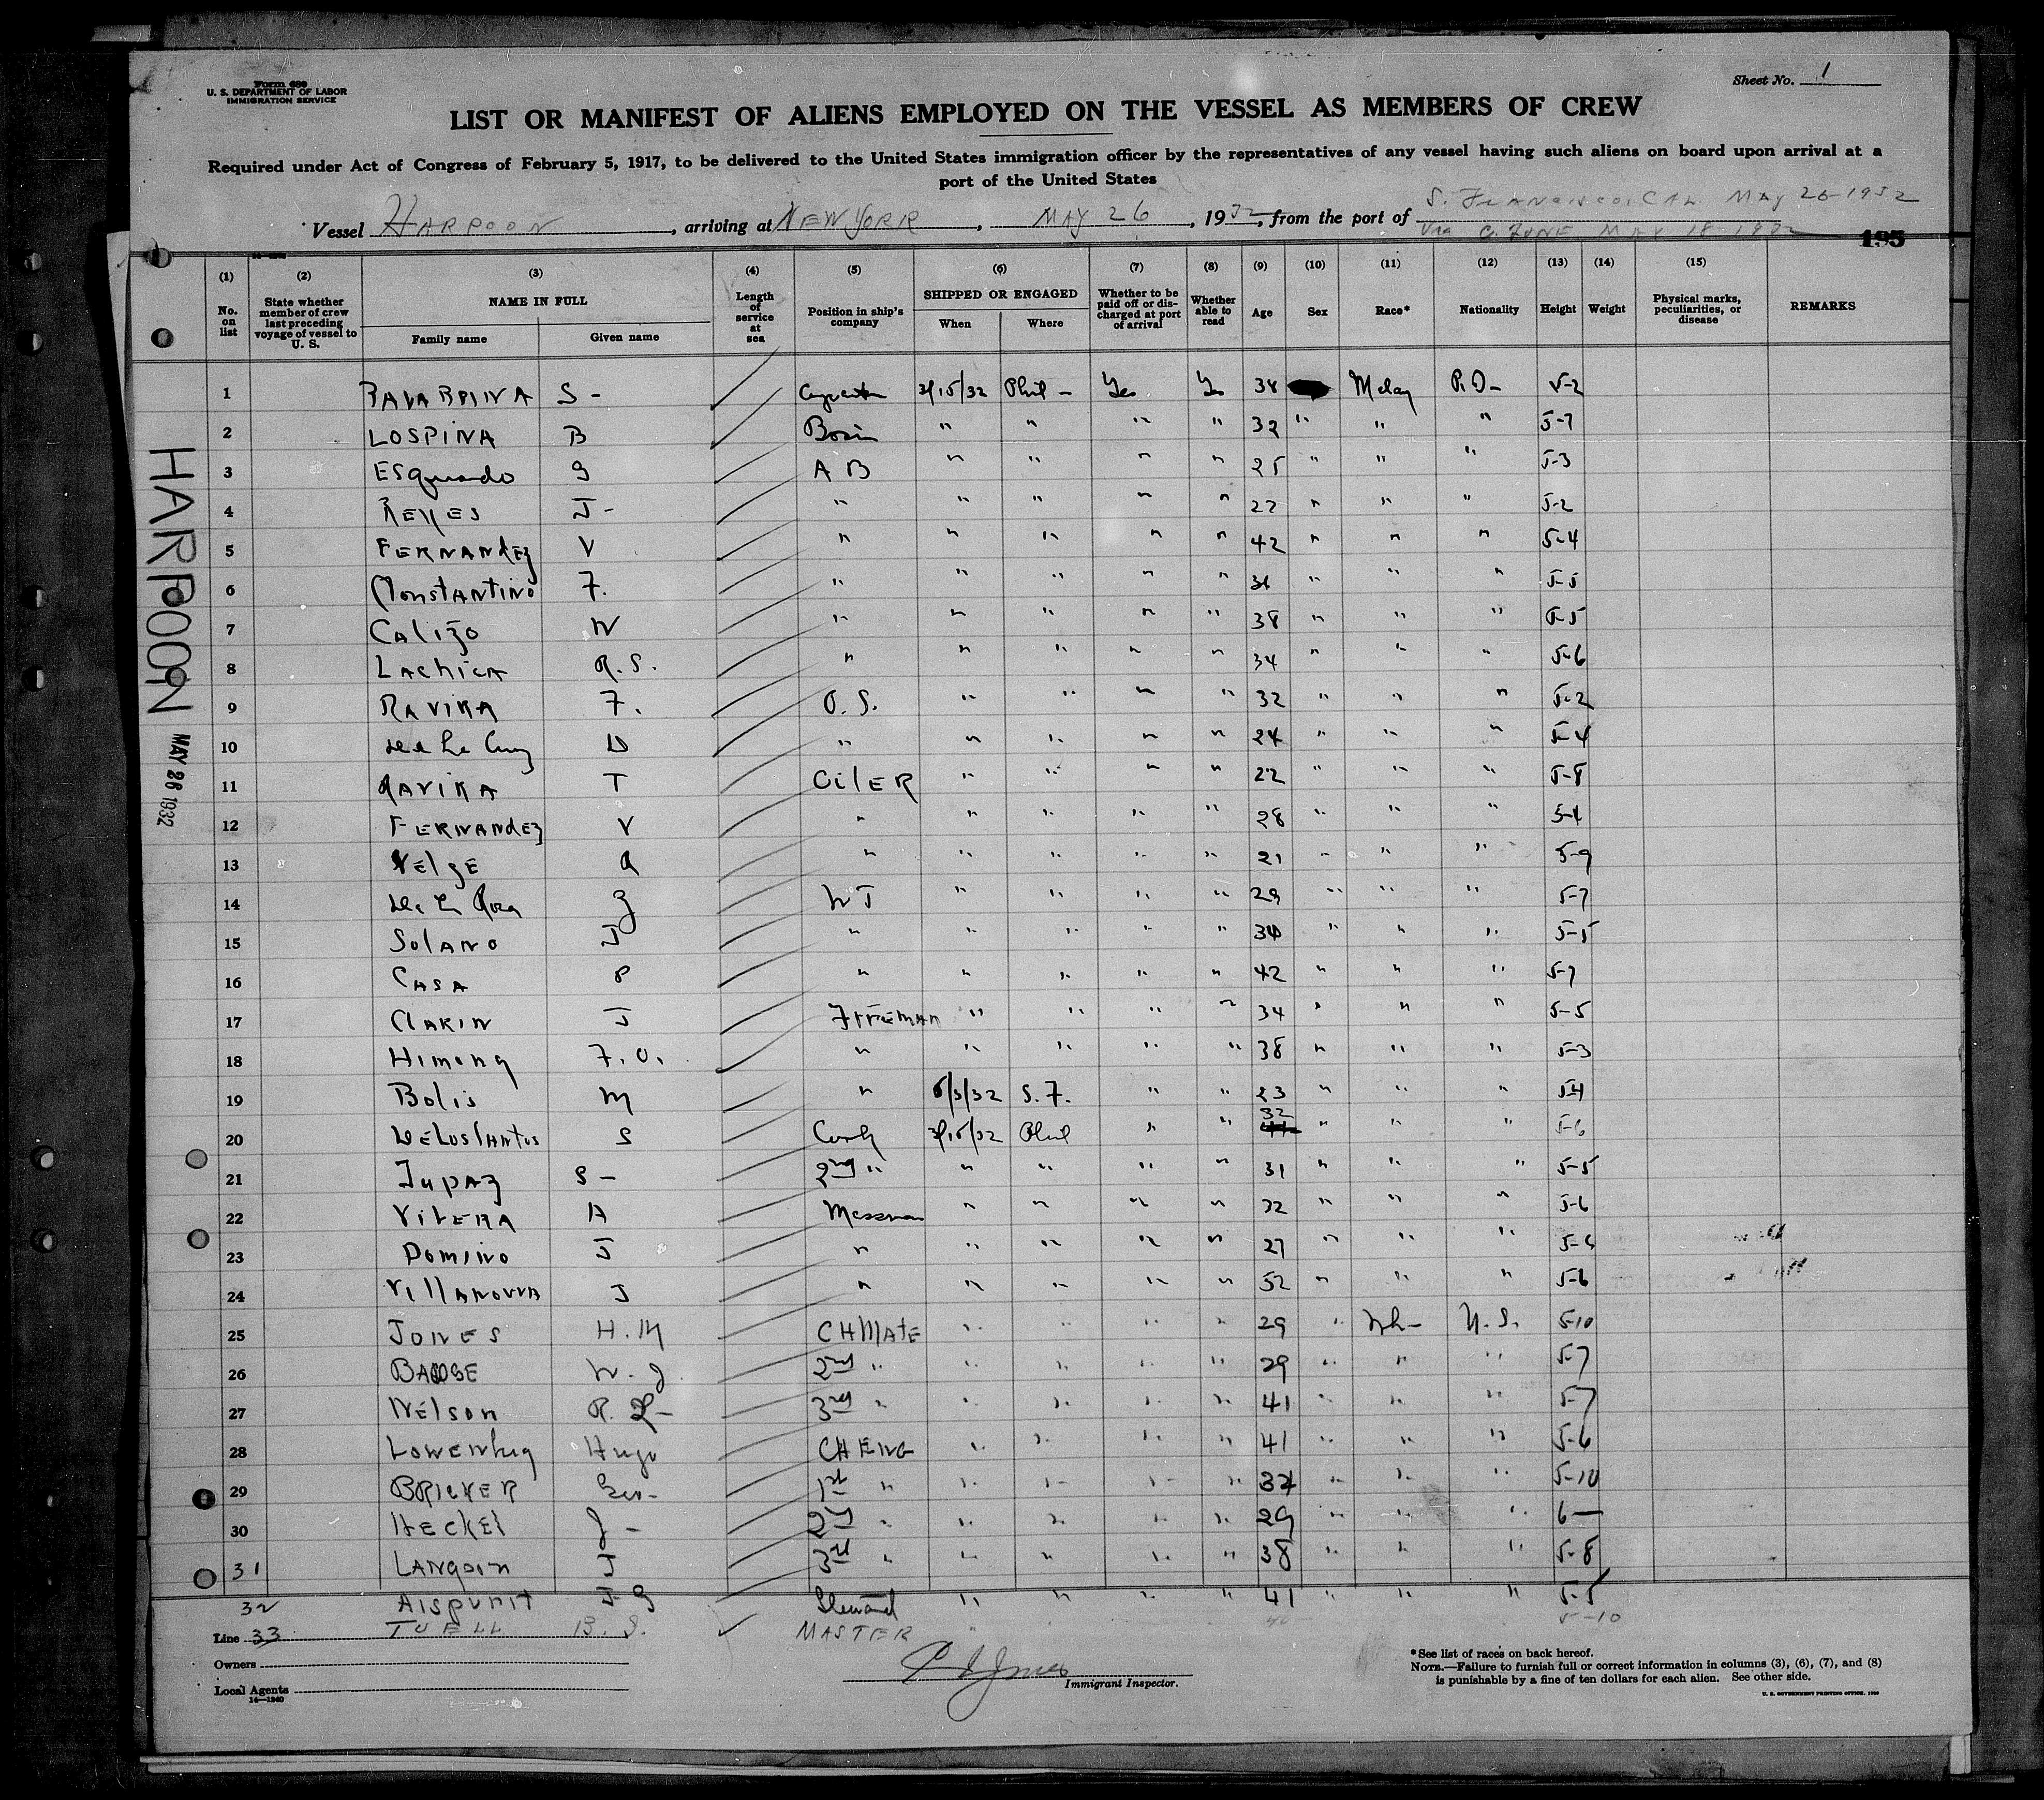 Form 680
U. S. DEPARTMENT OF LABOR
IMMIGRATION SERVICE
Sheet No. 1
LIST OR MANIFEST OF ALIENS EMPLOYED ON THE VESSEL AS MEMBERS OF CREW
Required under Act of Congress of February 5, 1917, to be delivered to the United States immigration officer by the representatives of any vessel having such aliens on board upon arrival at a
port of the United States
Vessel HARPOON, arriving at NEW YORK, MAY 26, 1932, from the port of S. FRANCISCO, CAL MAY 1932
Via C. ZONE MAY 18 1932
195
(1) (2) (3) (4) (5) (6) (7) (8) (9) (10) (11) (12) (13) (14) (15)
No. on list State whether member of crew last preceding voyage of vessel to U. S. NAME IN FULL Family name Given name Length of service at sea Position in ship's company SHIPPED OR ENGAGED When Where Whether to be paid off or discharged at port of arrival Whether able to read Age Sex Race* Nationality Height Weight Physical marks, peculiarities, or disease REMARKS
HARPOON
MAY 26 1932
1 S - 3/15/32 Phil - Yes Yes 38 Malay P.I - 5-2
2 LOSPINA B Bosin " " " " 32 " " " 5-7
3 ESquardo g A B " " " " 25 " " " 5-3
4 REYES J - " " " " " 27 " " " 5-2
5 FERNANdEz V " " " " " 42 " " " 5-4
6 ConstANTiNO F. " " " " " 36 " " " 5-5
7 CAlizo N " " " " " 38 " " " 5-5
8 LAchiCA R. S. " " " " " 34 " " " 5-6
9 RAViRA F. O. S. " " " " 32 " " " 5-2
10 de La Cruz D " " " " " 24 " " " 5-4
11 RAViRA T OilER " " " " 22 " " " 5-8
12 FERNANdEz V " " " " " 28 " " " 5-4
13 VElgE A " " " " " 21 " " " 5-9
14 de La Rosa g W T " " " " 29 " " " 5-7
15 SolANO J " " " " " 34 " " " 5-5
16 CASA P " " " " " 42 " " " 5-7
17 ClARIN J FIREMAN " " " " 34 " " " 5-5
18 Himeng F. O. " " " " " 38 " " " 5-3
19 Bolis M " 5/3/32 S. F. " " 23 " " " 5-4
20 DELosSANtos S Cook 3/15/32 Phil " " 32 " " " 5-6
21 TupAz S - 2nd " " " " " 31 " " " 5-5
22 ViLERA A Messman " " " " 32 " " " 5-6
23 DOMiNO J " " " " " 27 " " " 5-6
24 VillANOVVA J " " " " " 52 " " " 5-6
25 JONES H. M CHMAtE " " " " 29 " Wh- U. S. 5-10
26 W. J. 2nd " " " " " 29 " " " 5-7
27 NElson R. L- 3rd " " " " " 41 " " " 5-7
28 Hugo CH ENG " " " " 41 " " " 5-6
29 BRICKER Geo- 1st " " " " " " " " 5-10
30 HECKEl J - 2nd " " " " " 29 " " " 6 —
31 LANgdin J 3rd " " " " " 38 " " " 5-8
32 AISPURIT J G Steward " " " " 41 " " " 5-5
Line 33 TUELL B. S. MASTER " 5-10
Owners
Local Agents
14—1240
Immigrant Inspector.
*See list of races on back hereof.
NOTE.—Failure to furnish full or correct information in columns (3), (6), (7), and (8)
is punishable by a fine of ten dollars for each alien. See other side.
U. S. GOVERNMENT PRINTING OFFICE. 1930